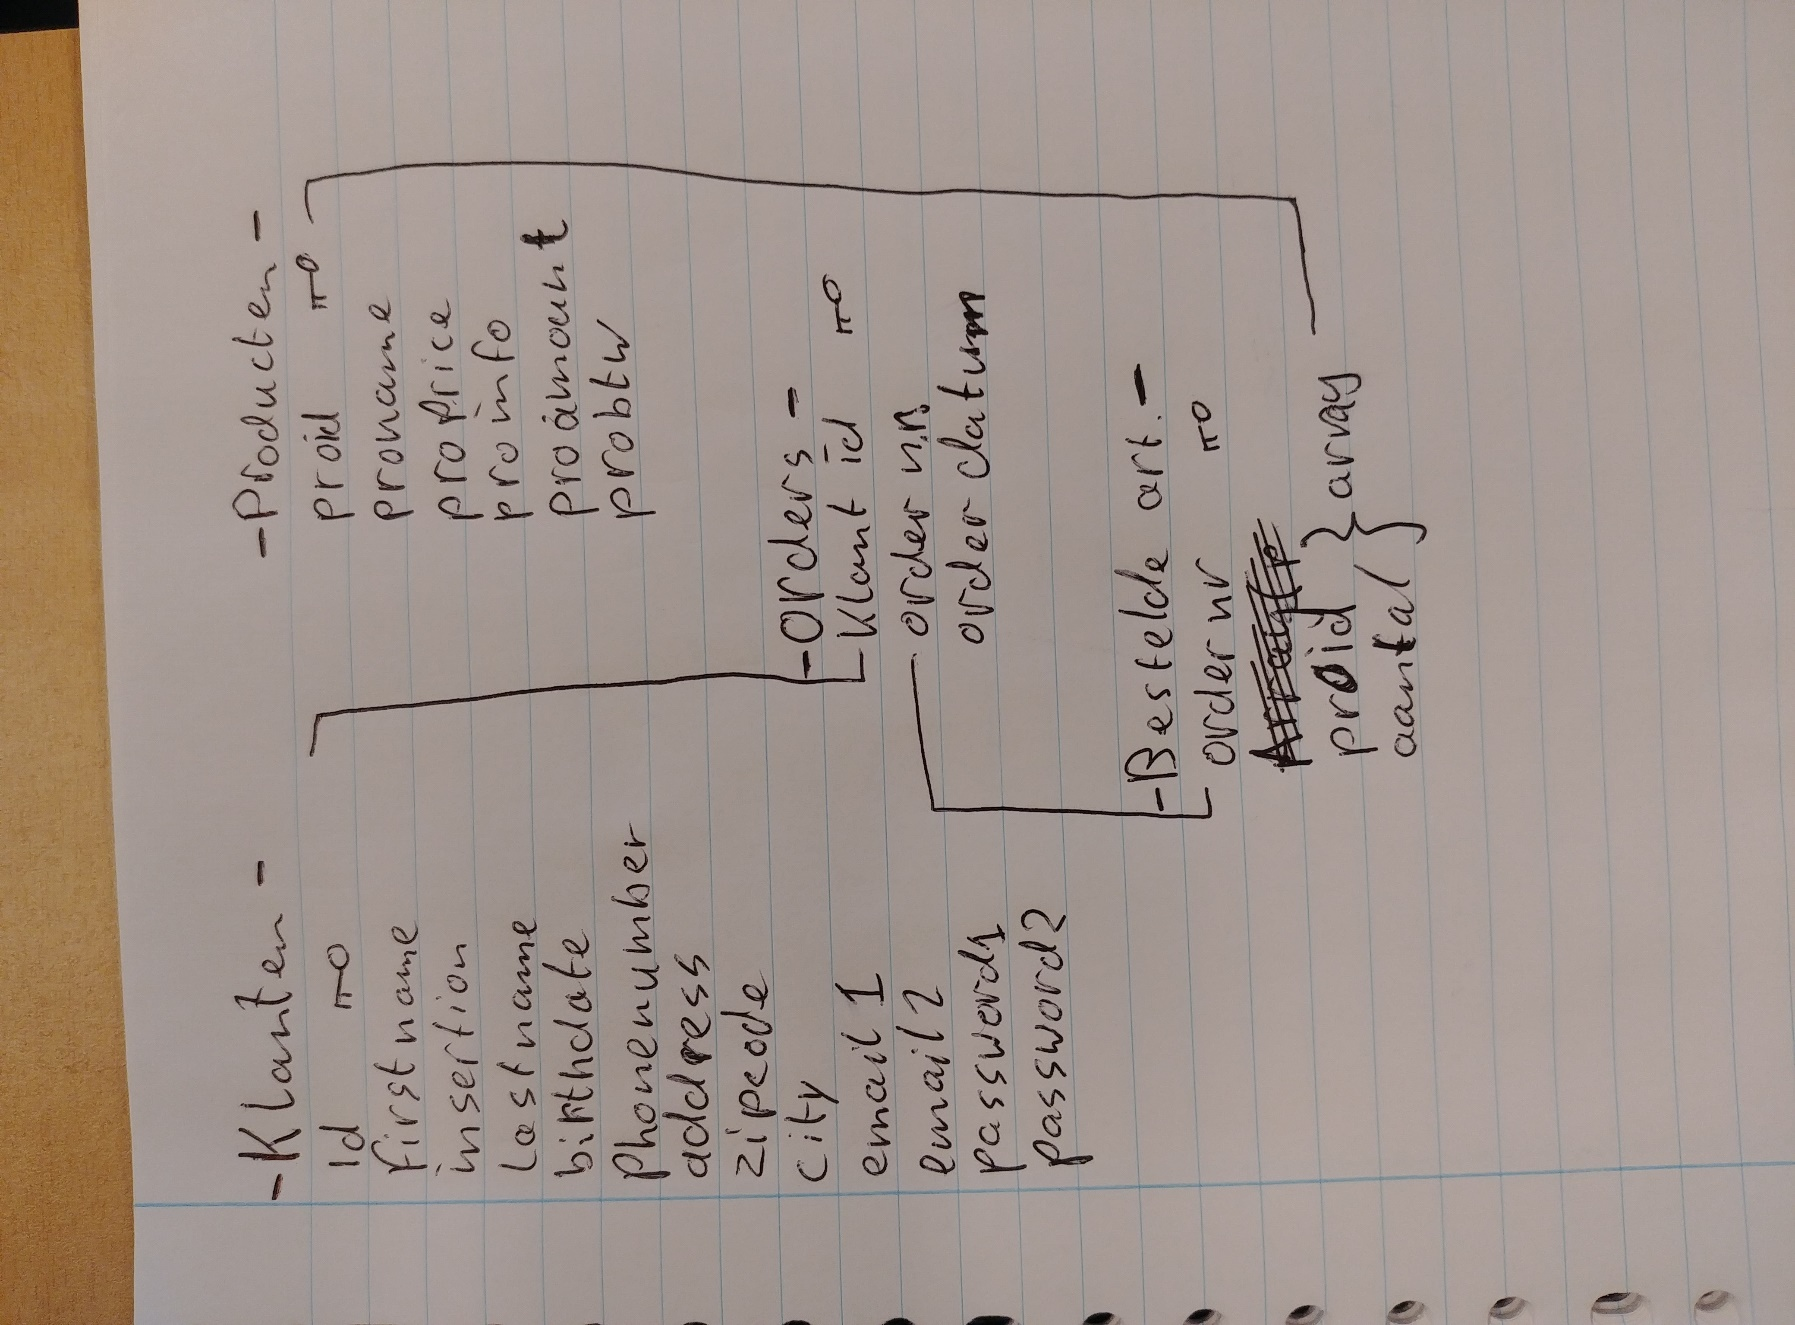 -Klanten-
Id
firstname
insertion
Lastname
birthdate
Phonenumber
address
zipcode
city
email 1
email 2
password1
password2
-Producten-
proid
proname
proprice
proinfo
proamount
probtw
-Orders-
Klant id
order nr
order datum
-Bestelde art.-
ordernr
proid } array
aantal }